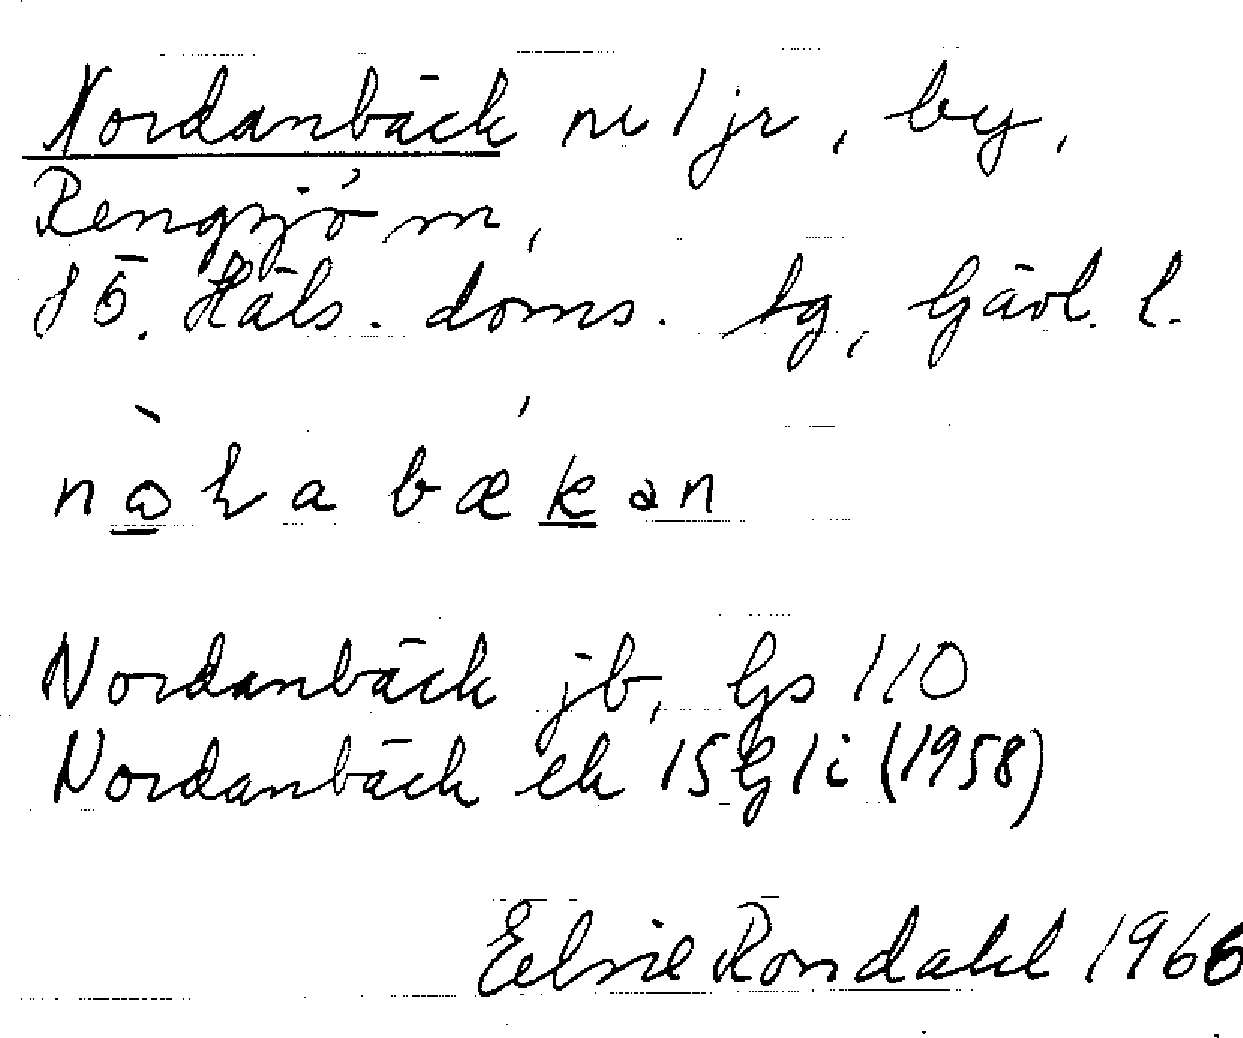 Nordanbäck nr 1 jr, by,
Rengsjö sn,
S ö. Häls. doms. tg, Gävl. l.
Nordanbäck jb, Gs 110
Nordanbäck ek 15G 1i (1958)
Elsie Rondahl 1966